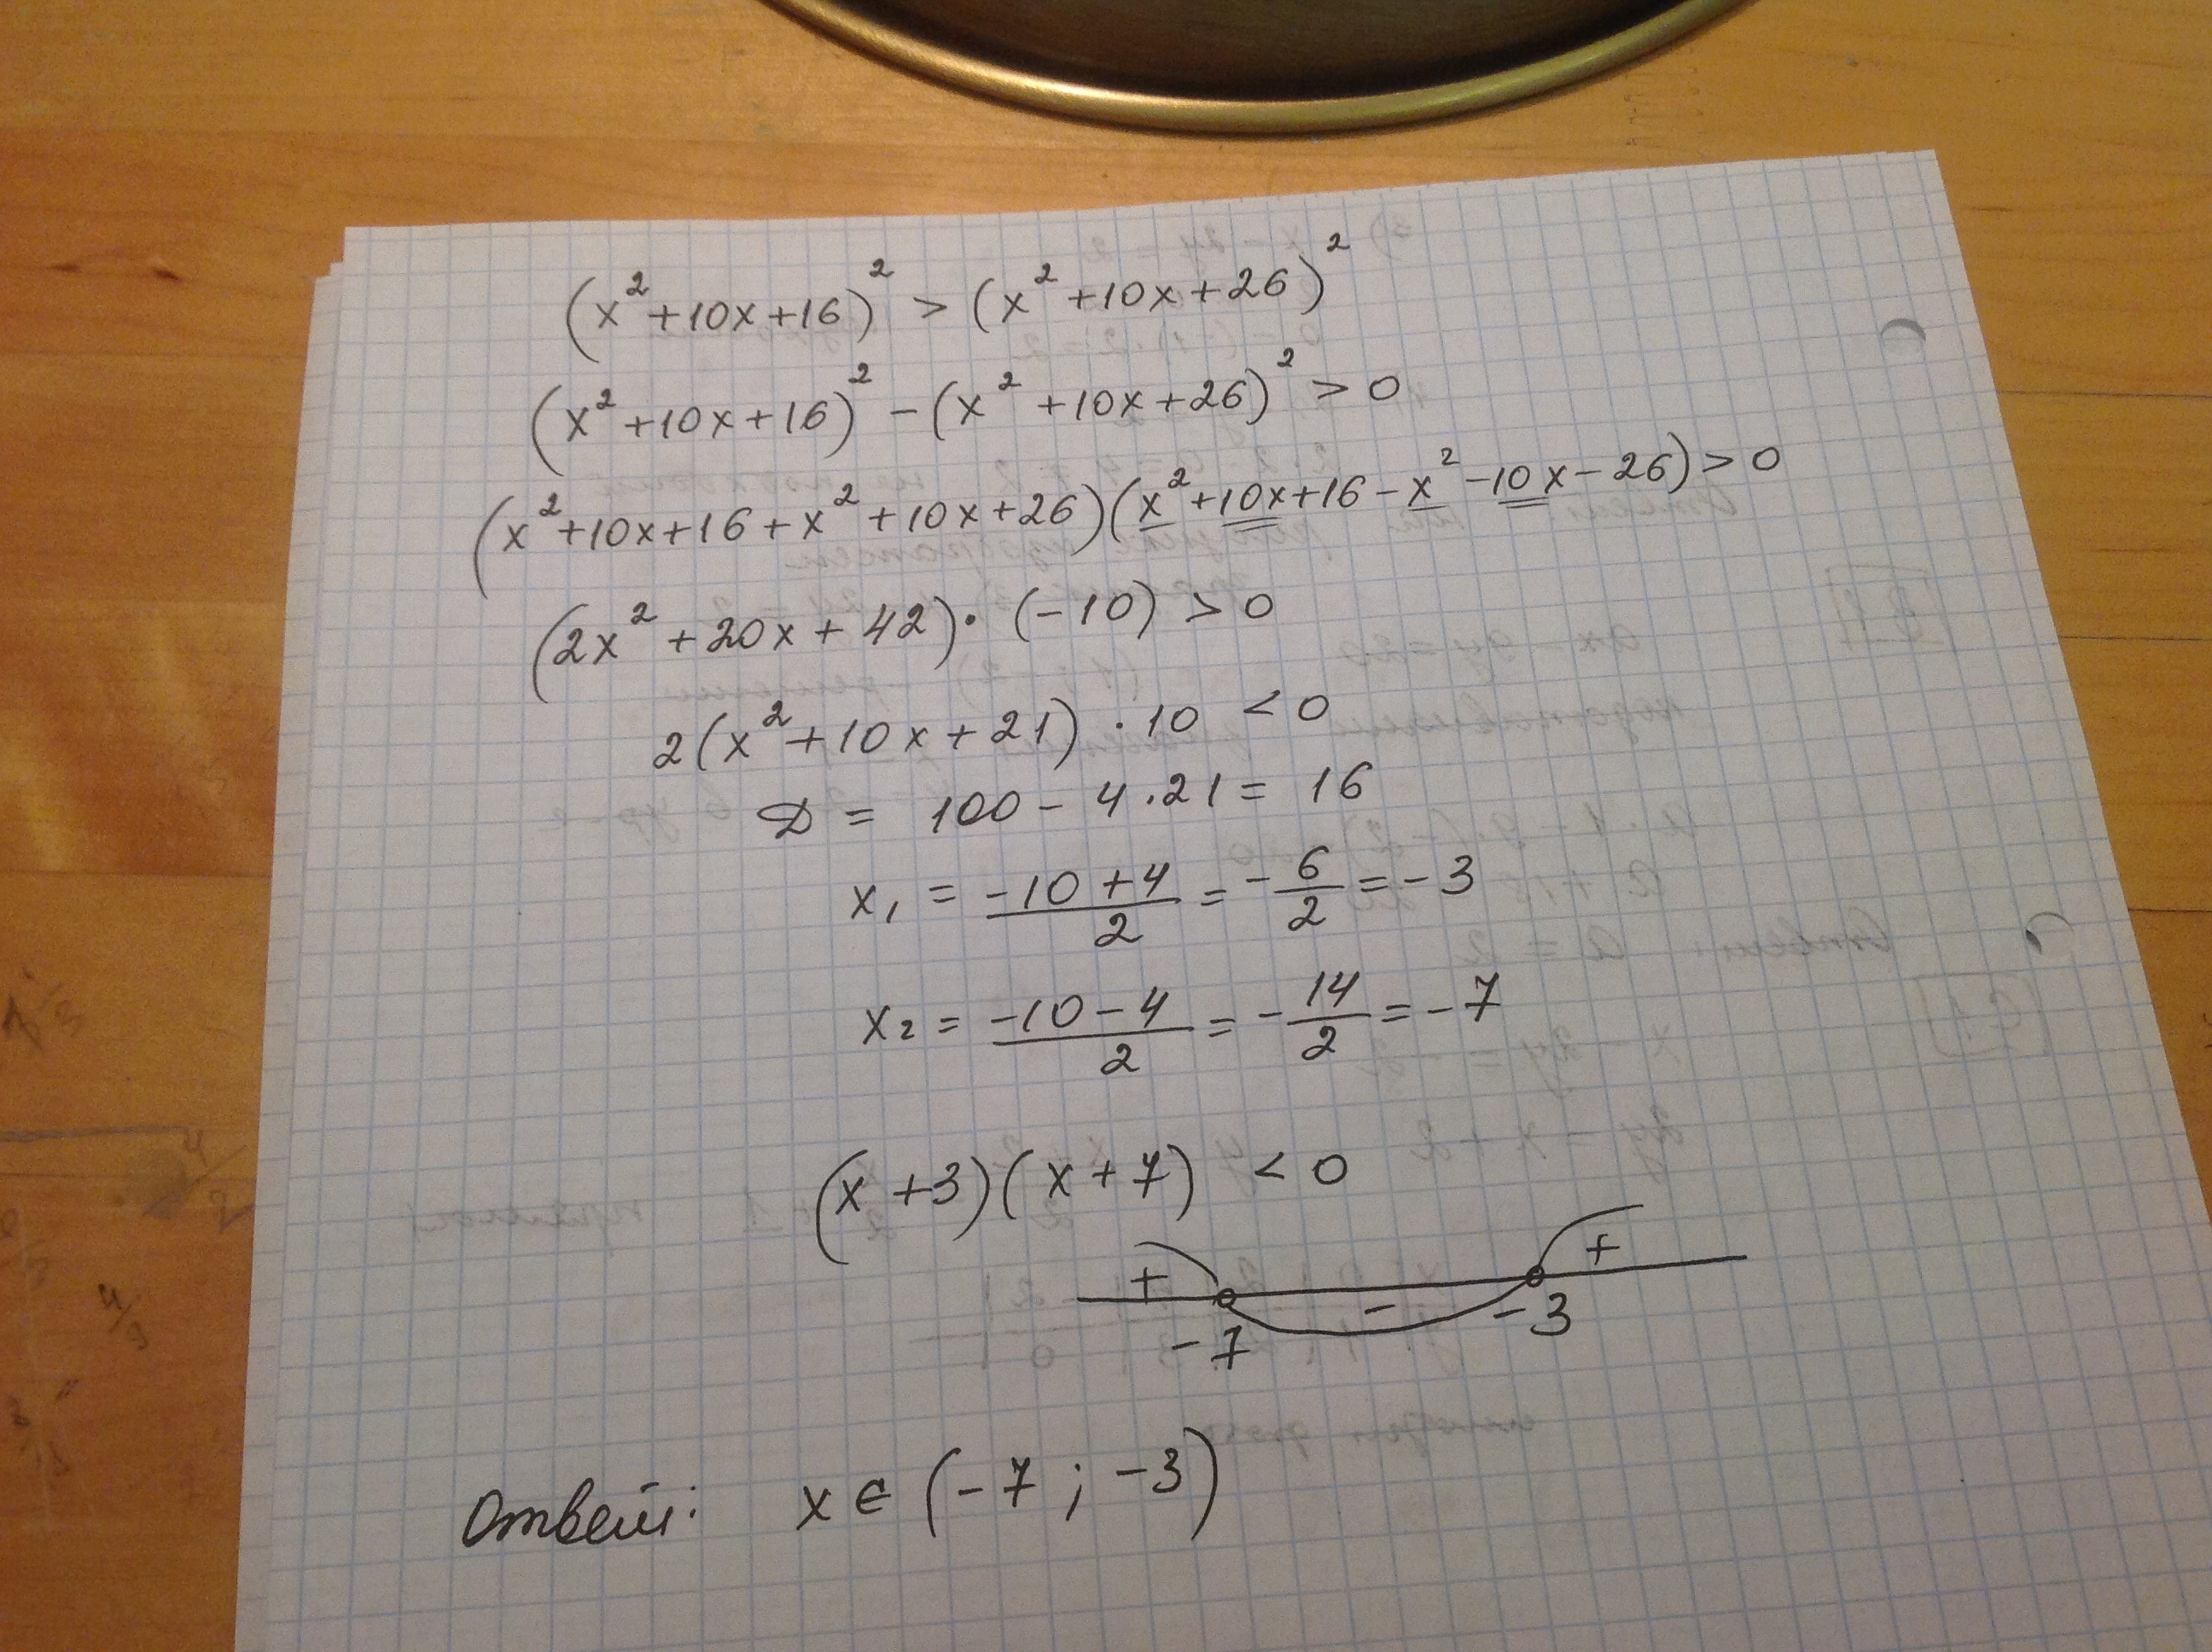 (x² + 10x + 16)² > (x² + 10x + 26)²
(x² + 10x + 16)² - (x² + 10x + 26)² > 0
(x² + 10x + 16 + x² + 10x + 26)(x² + 10x + 16 - x² - 10x - 26) > 0
(2x² + 20x + 42) · (-10) > 0
2(x² + 10x + 21) · 10 < 0
D = 100 - 4 · 21 = 16
x₁ = (-10 + 4)/2 = -6/2 = -3
x₂ = (-10 - 4)/2 = -14/2 = -7
(x + 3)(x + 7) < 0
+ - +
-7 -3
Ответ: x ∈ (-7 ; -3)